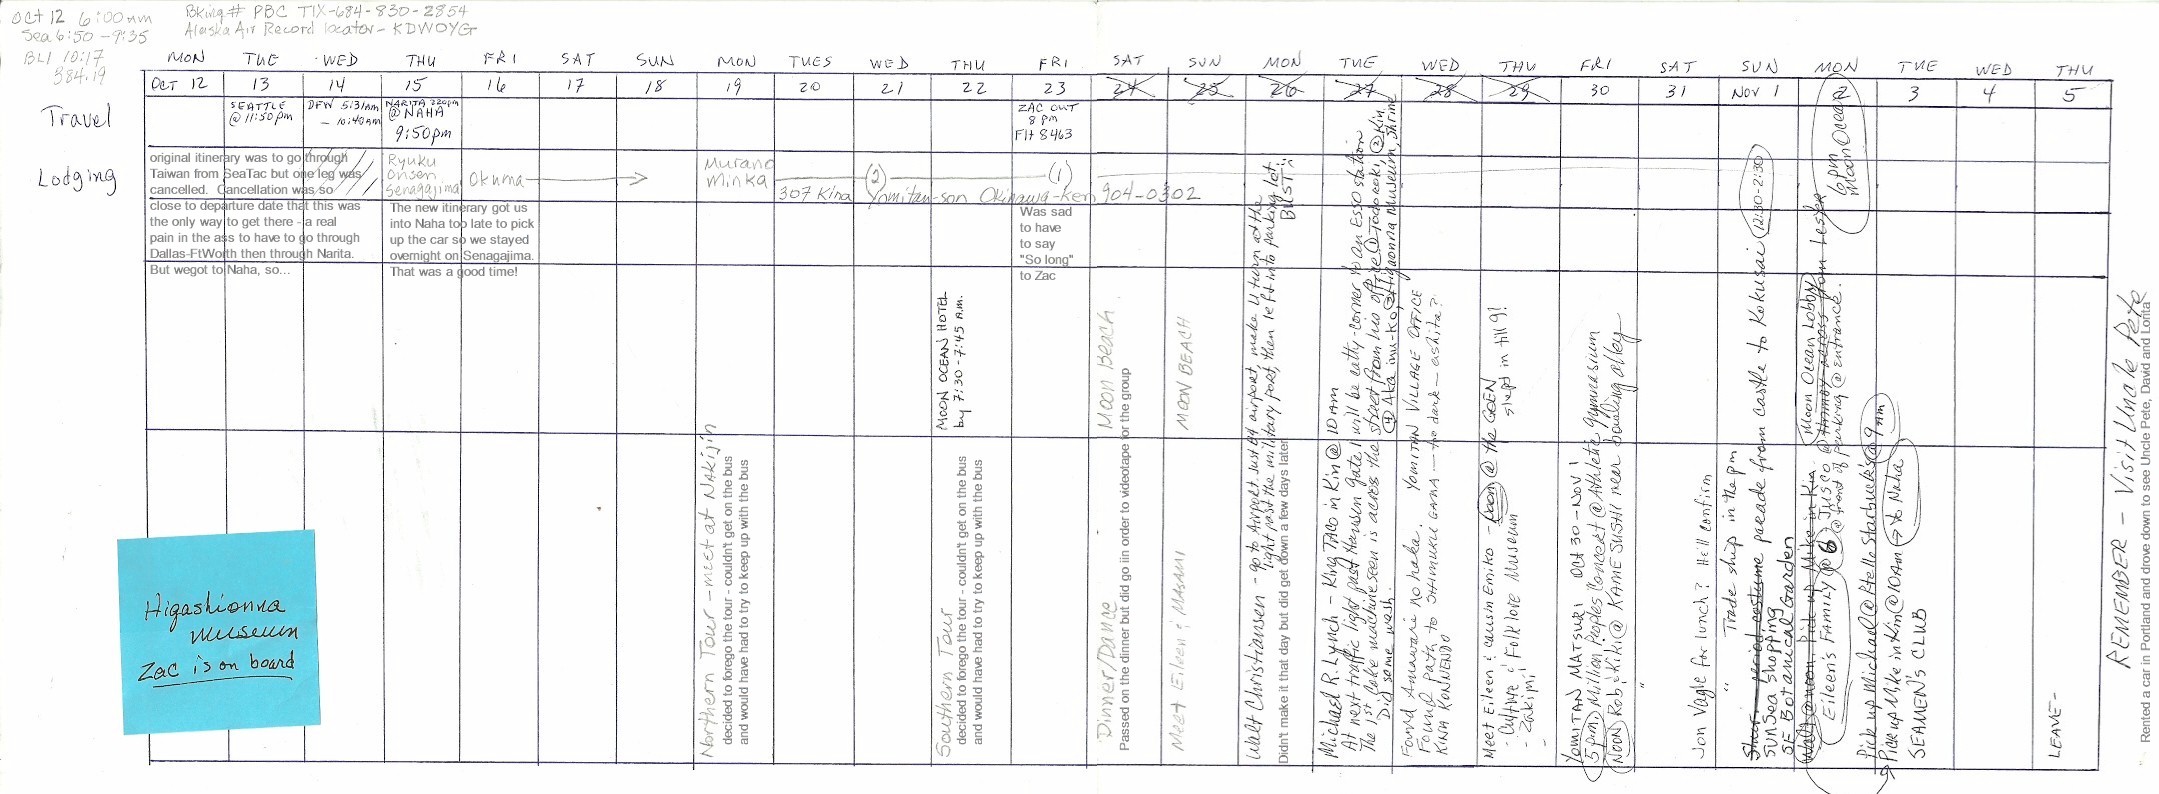 Oct 12 6:00 am
Sea 6:50 - 9:35
BLI 10:17
384.19
Bking# PBC TIX-684-830-2854
Alaska Air Record locator - KDWOYG
MON TUE WED THU FRI SAT SUN MON TUES WED THU FRI SAT SUN MON TUE WED THU FRI SAT SUN MON TUE WED THU
OCT 12 13 14 15 16 17 18 19 20 21 22 23 24 25 26 27 28 29 30 31 Nov 1 2 3 4 5
Travel
SEATTLE
@ 11:50 pm
DFW 5:31AM
- 10:40AM
NARITA 220pm
@ NAHA
9:50pm
ZAC OUT
8 PM
Flt 8463
Lodging
original itinerary was to go through
Taiwan from SeaTac but one leg was
cancelled. Cancellation was so
close to departure date that this was
the only way to get there - a real
pain in the ass to have to go through
Dallas-FtWorth then through Narita.
But wegot to Naha, so...
Ryuku
Onsen
Senagajima
The new itinerary got us
into Naha too late to pick
up the car so we stayed
overnight on Senagajima.
That was a good time!
Okuma
Murano
Minka
(2) (1)
307 Kina Yomitan-son Okinawa-ken 904-0302
Was sad
to have
to say
"So long"
to Zac
Northern Tour - meet at NAKIJIN
decided to forego the tour - couldn't get on the bus
and would have had to try to keep up with the bus
MOON OCEAN HOTEL
by 7:30 - 7:45 A.M.
Southern Tour
decided to forego the tour - couldn't get on the bus
and would have had to try to keep up with the bus
Moon Beach
Dinner/Dance
Passed on the dinner but did go iin order to videotape for the group
MOON BEACH
Meet Eileen & MASAMI
Walt Christiansen - go to Airport. Just B4 airport, make U turn at the
light past the military port, then left into parking lot.
BUST!
Didn't make it that day but did get down a few days later
Michael R. Lynch - King TACO in Kin @ 10 AM
At next traffic light past Hansen gate, I will be catty corner to an ESSO station
The 1st Coke machine seen is across the street from his office ① Todoroki, ② Kin
④ Aka inu-ko, ③ Higaonna Museum, Shrine
Did some wash.
Found Annwarie no haka. YOMITAN VILLAGE OFFICE
Found path to SHIMUKU GAMA - too dark - ashita?
KINA KONBENO
Meet Eileen & cousin Emiko - Noon @ the GOEN
slept in till 9!
- Culture & Folklore Museum
- Zakimi
YOMITAN MATSURI OCT 30 - NOV 1
5 pm Million Peoples' Concert @ Athletic Gymnasium
NOON Rob & Kiki @ KAME SUSHI near bowling alley
"
Jon Vagle for lunch? He'll confirm
" Trade ship in the pm
Shuri period costume parade from castle to Kokusai 12:30-2:30
SUNSea Shopping
SE Botanical Garden
6 pm
Moon Ocean
Walt @ noon, Pick up Mike in Kin.
Moon Ocean Lobby
Eileen's FAMILY @ 6 JUSCO @ Hamby across from Lester
@ front of parking @ entrance.
Pick up Michael @ Hello Starbuck's @ 9 am
Pick up Mike in Kin @ 10 AM → to Naha
SEAMEN'S CLUB
LEAVE-
REMEMBER - Visit Uncle Pete
Rented a car in Portland and drove down to see Uncle Pete, David and Lorita
Higashionna
Museum
Zac is on board